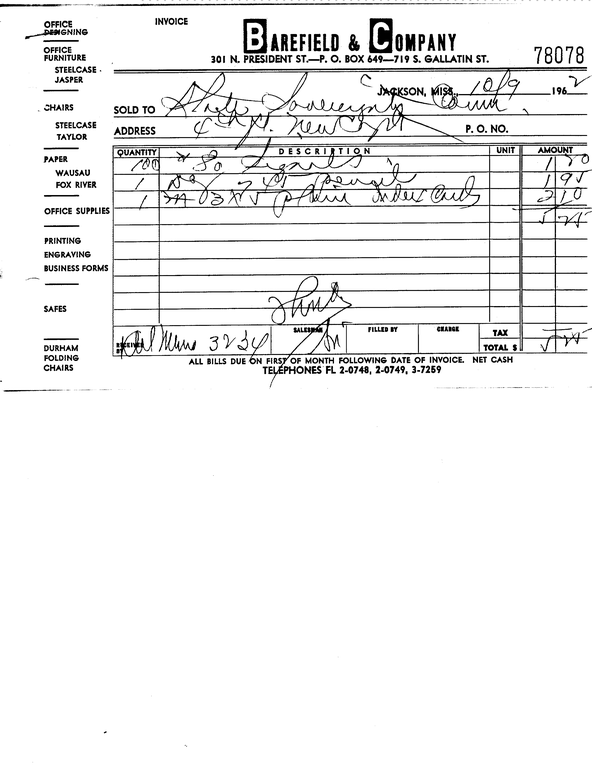 INVOICE
BAREFIELD & COMPANY
301 N. PRESIDENT ST.—P. O. BOX 649—719 S. GALLATIN ST.
78078
JACKSON, MISS., 10/9 1962
SOLD TO State Sovereignty Comm
ADDRESS New Cptl P. O. NO.
QUANTITY DESCRIPTION UNIT AMOUNT
100 Signals 1 80
1 pencil 1 95
1 3x5 plain Index Cards 2 10
Thanks
RECEIVED BY 3234 SALESMAN FILLED BY CHARGE TAX
TOTAL $
ALL BILLS DUE ON FIRST OF MONTH FOLLOWING DATE OF INVOICE. NET CASH
TELEPHONES FL 2-0748, 2-0749, 3-7259
OFFICE
DESIGNING
OFFICE
FURNITURE
STEELCASE
JASPER
CHAIRS
STEELCASE
TAYLOR
PAPER
WAUSAU
FOX RIVER
OFFICE SUPPLIES
PRINTING
ENGRAVING
BUSINESS FORMS
SAFES
DURHAM
FOLDING
CHAIRS